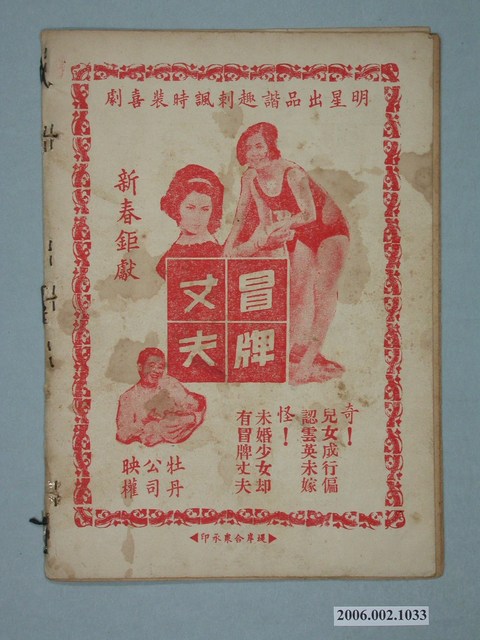 明星出品諧趣刺諷時裝喜劇
新春鉅獻
冒牌
丈夫
奇!
兒女成行偏
認雲英未嫁
怪!
未婚少女却
有冒牌丈夫
牡丹
公司
映權
2006.002.1033